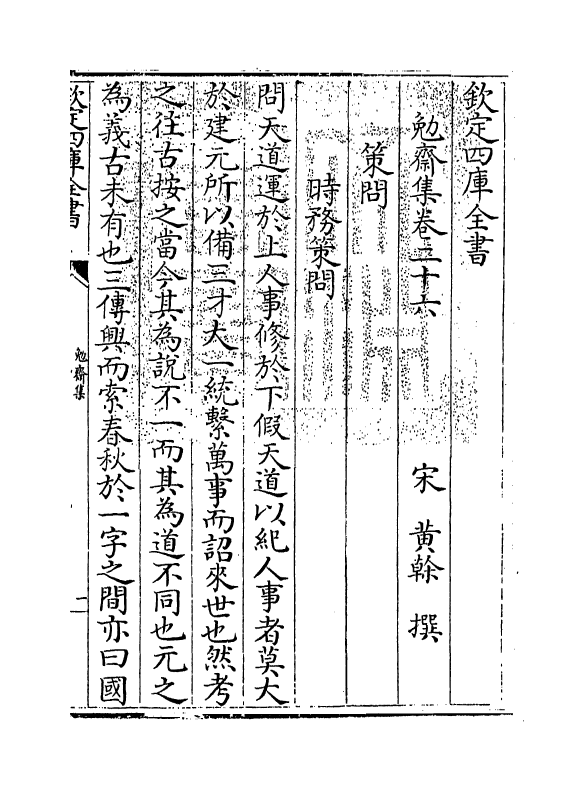 欽定四庫全書
勉齋集卷二十六
宋 黃榦 撰
策問
時務策問
問天道運於上人事修於下假天道以紀人事者莫大
於建元所以備三才大一統繫萬事而詔來世也然考
之往古按之當今其為說不一而其為道不同也元之
為義古未有也三傳興而索春秋於一字之間亦曰國
欽定四庫全書
勉齋集